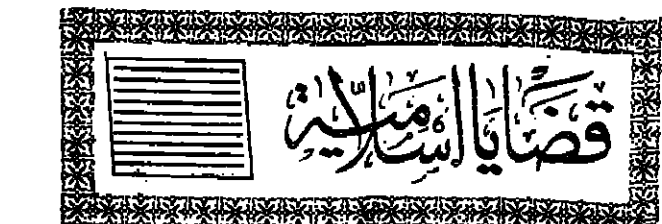 قضايا إسلامية